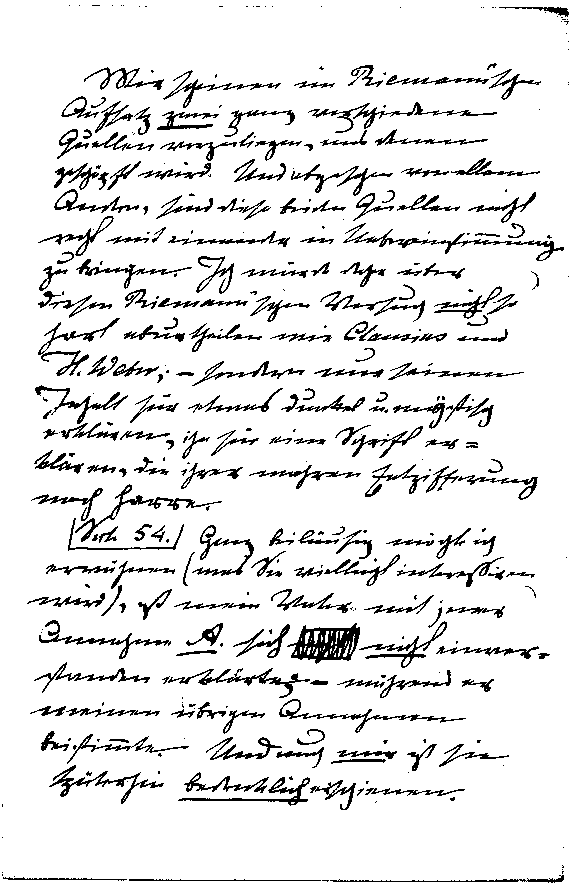 Mir scheinen im Riemann'schen
Aufsatz zwei ganz verschiedene
Quellen vorzuliegen, aus denen
geschöpft wird. Und abgesehen von allem
Andern, sind diese beiden Quellen nicht
recht mit einander in Uebereinstimmung
zu bringen. Ich würde aber über
diesen Riemann'schen Versuch nicht so
hart aburtheilen wie Clausius und
H. Weber; – sondern nur seinen
Inhalt für etwas dunkel u. mystisch
erklären, ihn für eine Schrift er=
klären, die ihrer wahren Entzifferung
noch harre.
Seite 54. Ganz beiläufig möchte ich
erwähnen (was Sie vielleicht interessiren
wird), daß mein Vater mit jener
Annahme A. sich nicht einver=
standen erklärte; – während er
meinen übrigen Annahmen
beistimmte. Und auch mir ist sie
späterhin bedenklich erschienen.